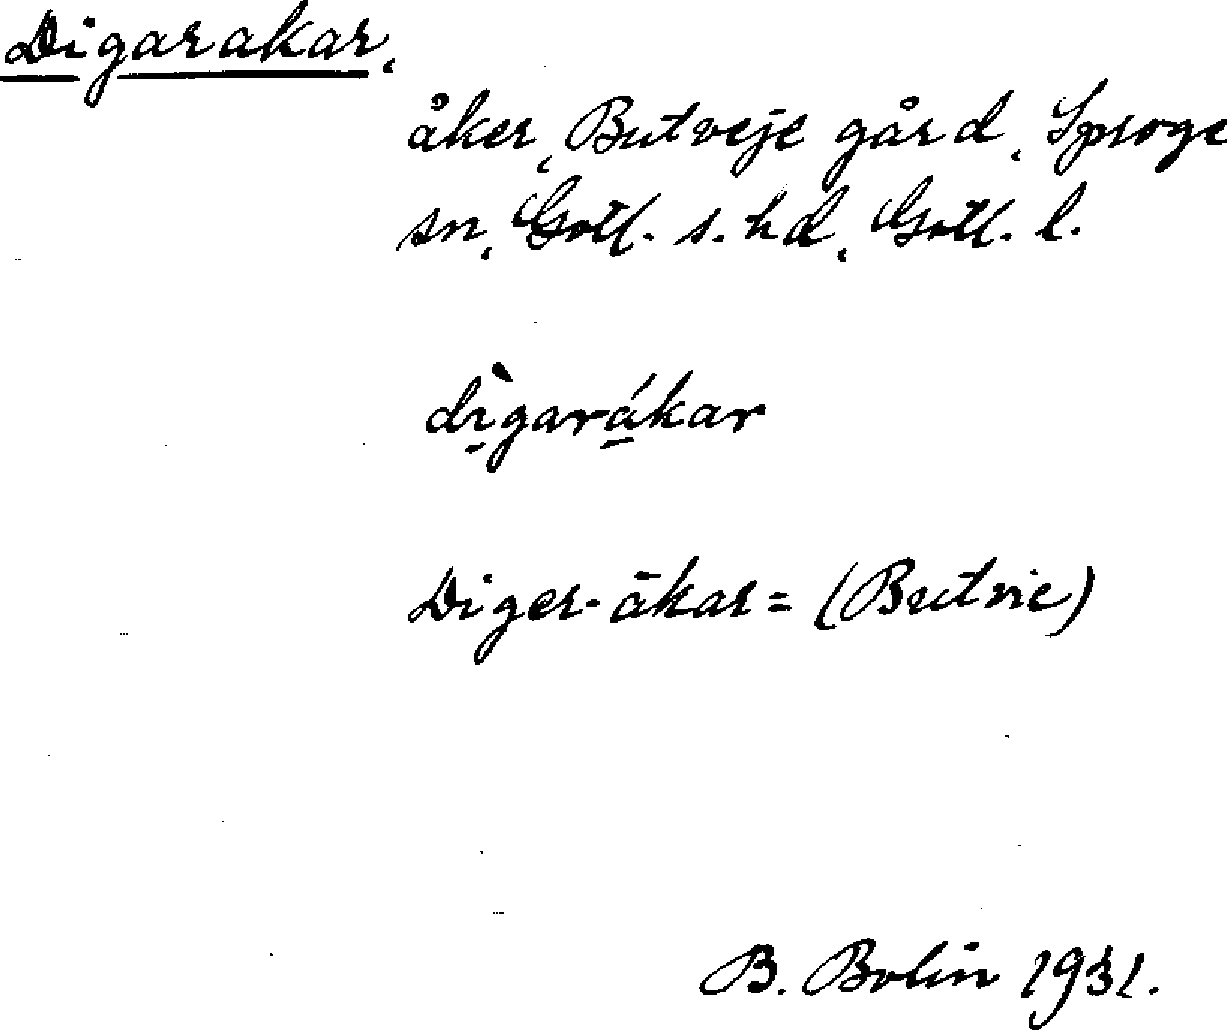 Digarakar,
åker, Butveje gård, Sproge
sn, Gotl. s. hd, Gotl. l.
dìgarákar
Diger-åkar = (Butvie)
B. Bolin 1931.